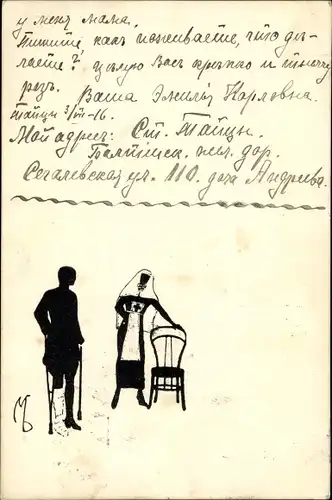 у меня мама.
Пишите, какъ поживаете, что дѣ-
лаете? Цѣлую Васъ крѣпко и тысячу
разъ. Ваша Эмилія Карловна.
Тайцы 3/III-16.
Мой адресъ: Ст. Тайцы.
Балтійск. жел. дор.
Сегалевская ул. 110. дача Андрѣева.